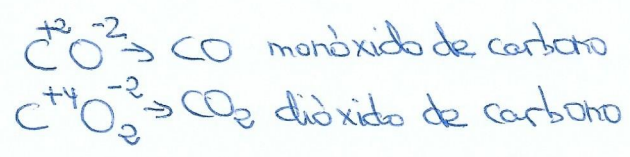 C⁺²O⁻² → CO monóxido de carbono
C⁺⁴O₂⁻² → CO₂ dióxido de carbono